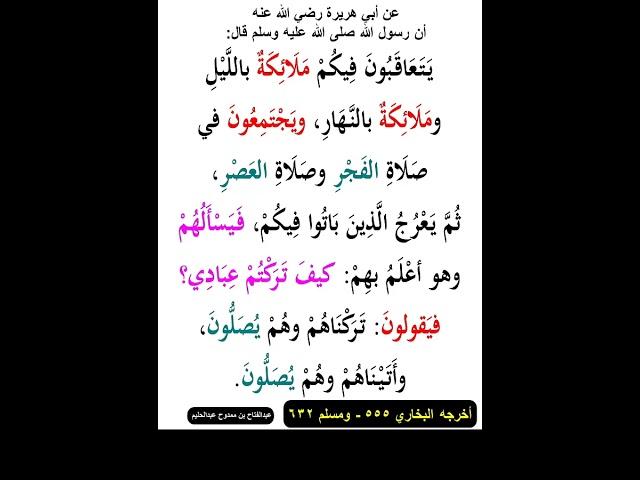 عن أبي هريرة رضي الله عنه
أن رسول الله صلى الله عليه وسلم قال:
يَتَعَاقَبُونَ فِيكُمْ مَلَائِكَةٌ باللَّيْلِ
ومَلَائِكَةٌ بالنَّهَارِ، ويَجْتَمِعُونَ في
صَلَاةِ الفَجْرِ وصَلَاةِ العَصْرِ،
ثُمَّ يَعْرُجُ الَّذِينَ بَاتُوا فِيكُمْ، فَيَسْأَلُهُمْ
وهو أعْلَمُ بهِمْ: كيفَ تَرَكْتُمْ عِبَادِي؟
فيَقولونَ: تَرَكْنَاهُمْ وهُمْ يُصَلُّونَ،
وأَتَيْنَاهُمْ وهُمْ يُصَلُّونَ.
أخرجه البخاري ٥٥٥ - ومسلم ٦٣٢
عبدالفتاح بن ممدوح عبدالحليم